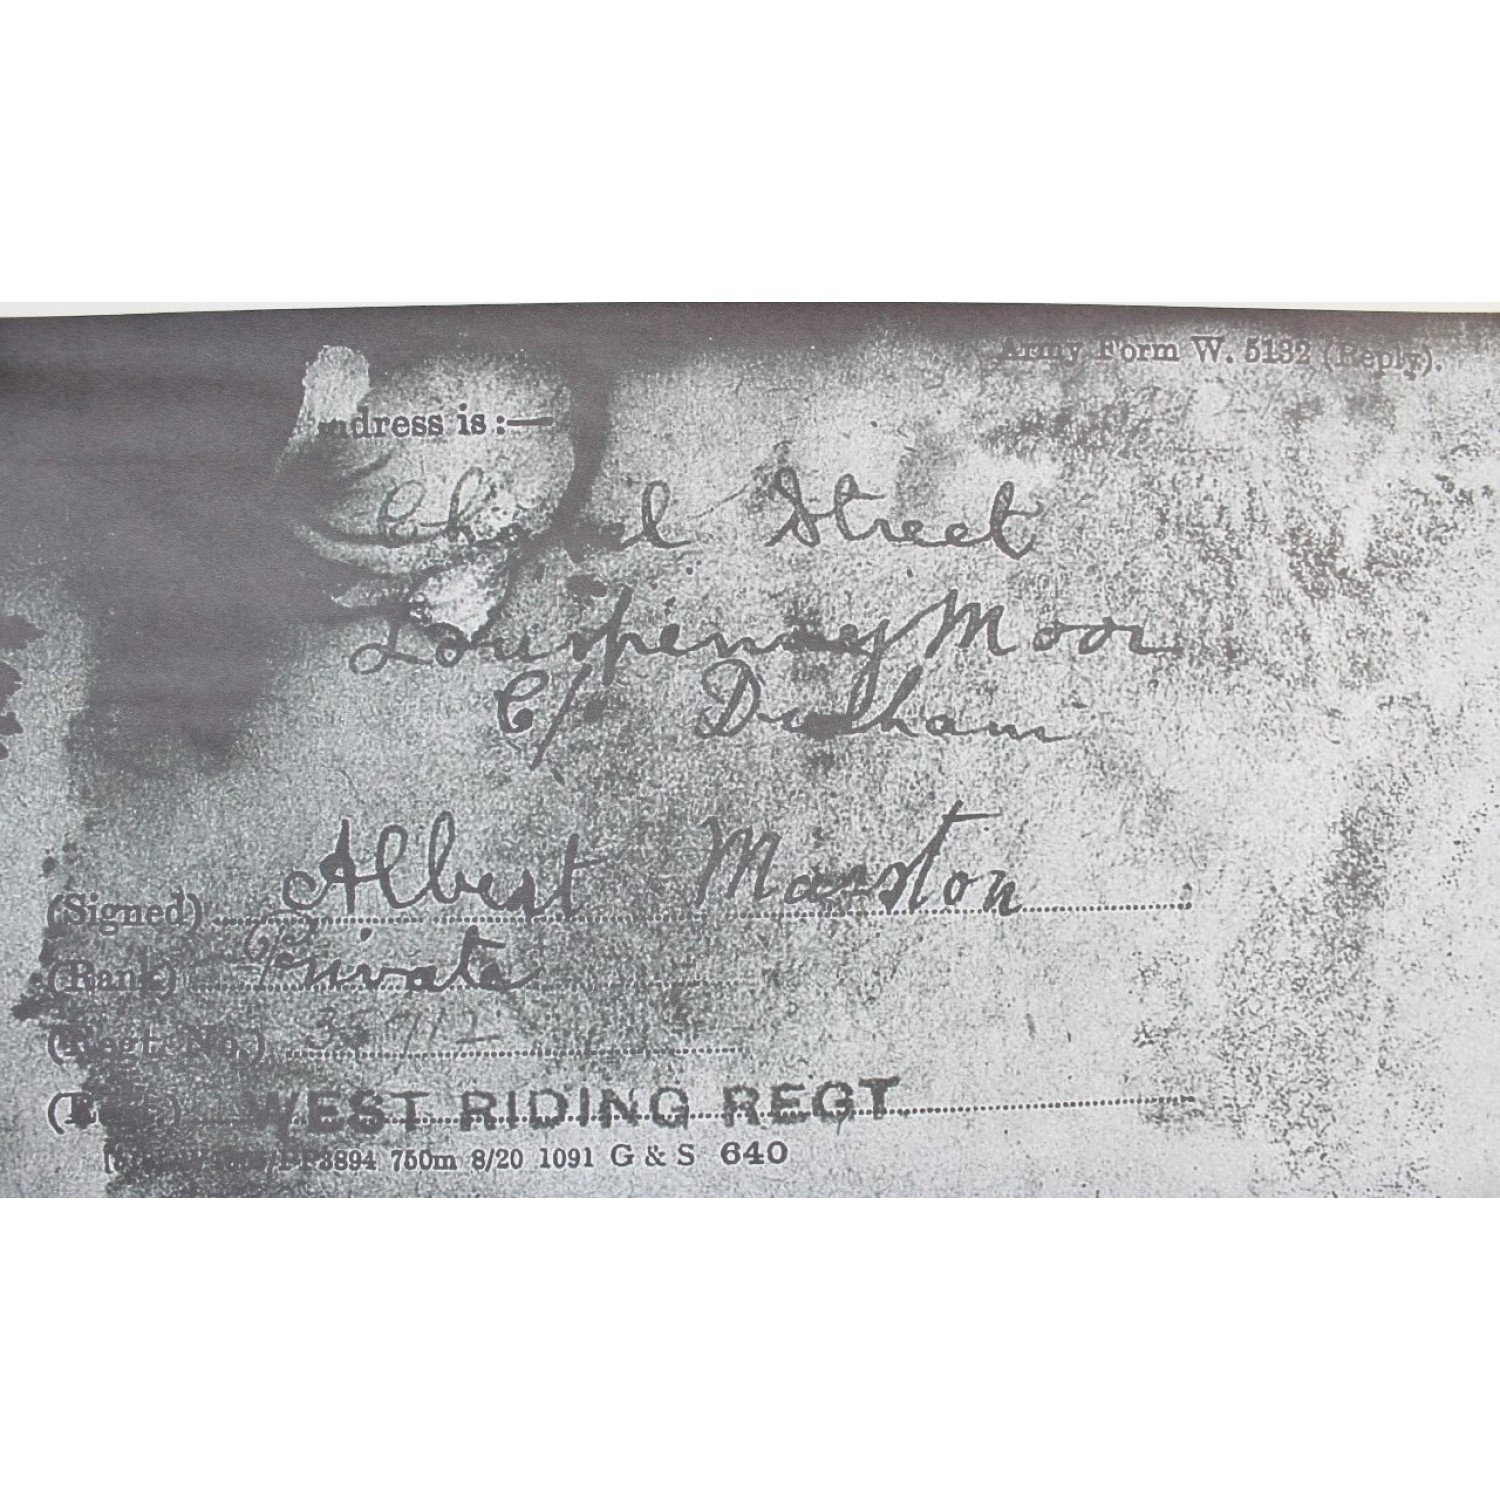 Army Form W. 5132 (Reply).
address is :—
Chapel Street
Louipenney Moor
C/o Durham
(Signed) Albert Marston
(Rank) Private
(Regt. No.)
WEST RIDING REGT.
3894 750m 8/20 1091 G & S 640